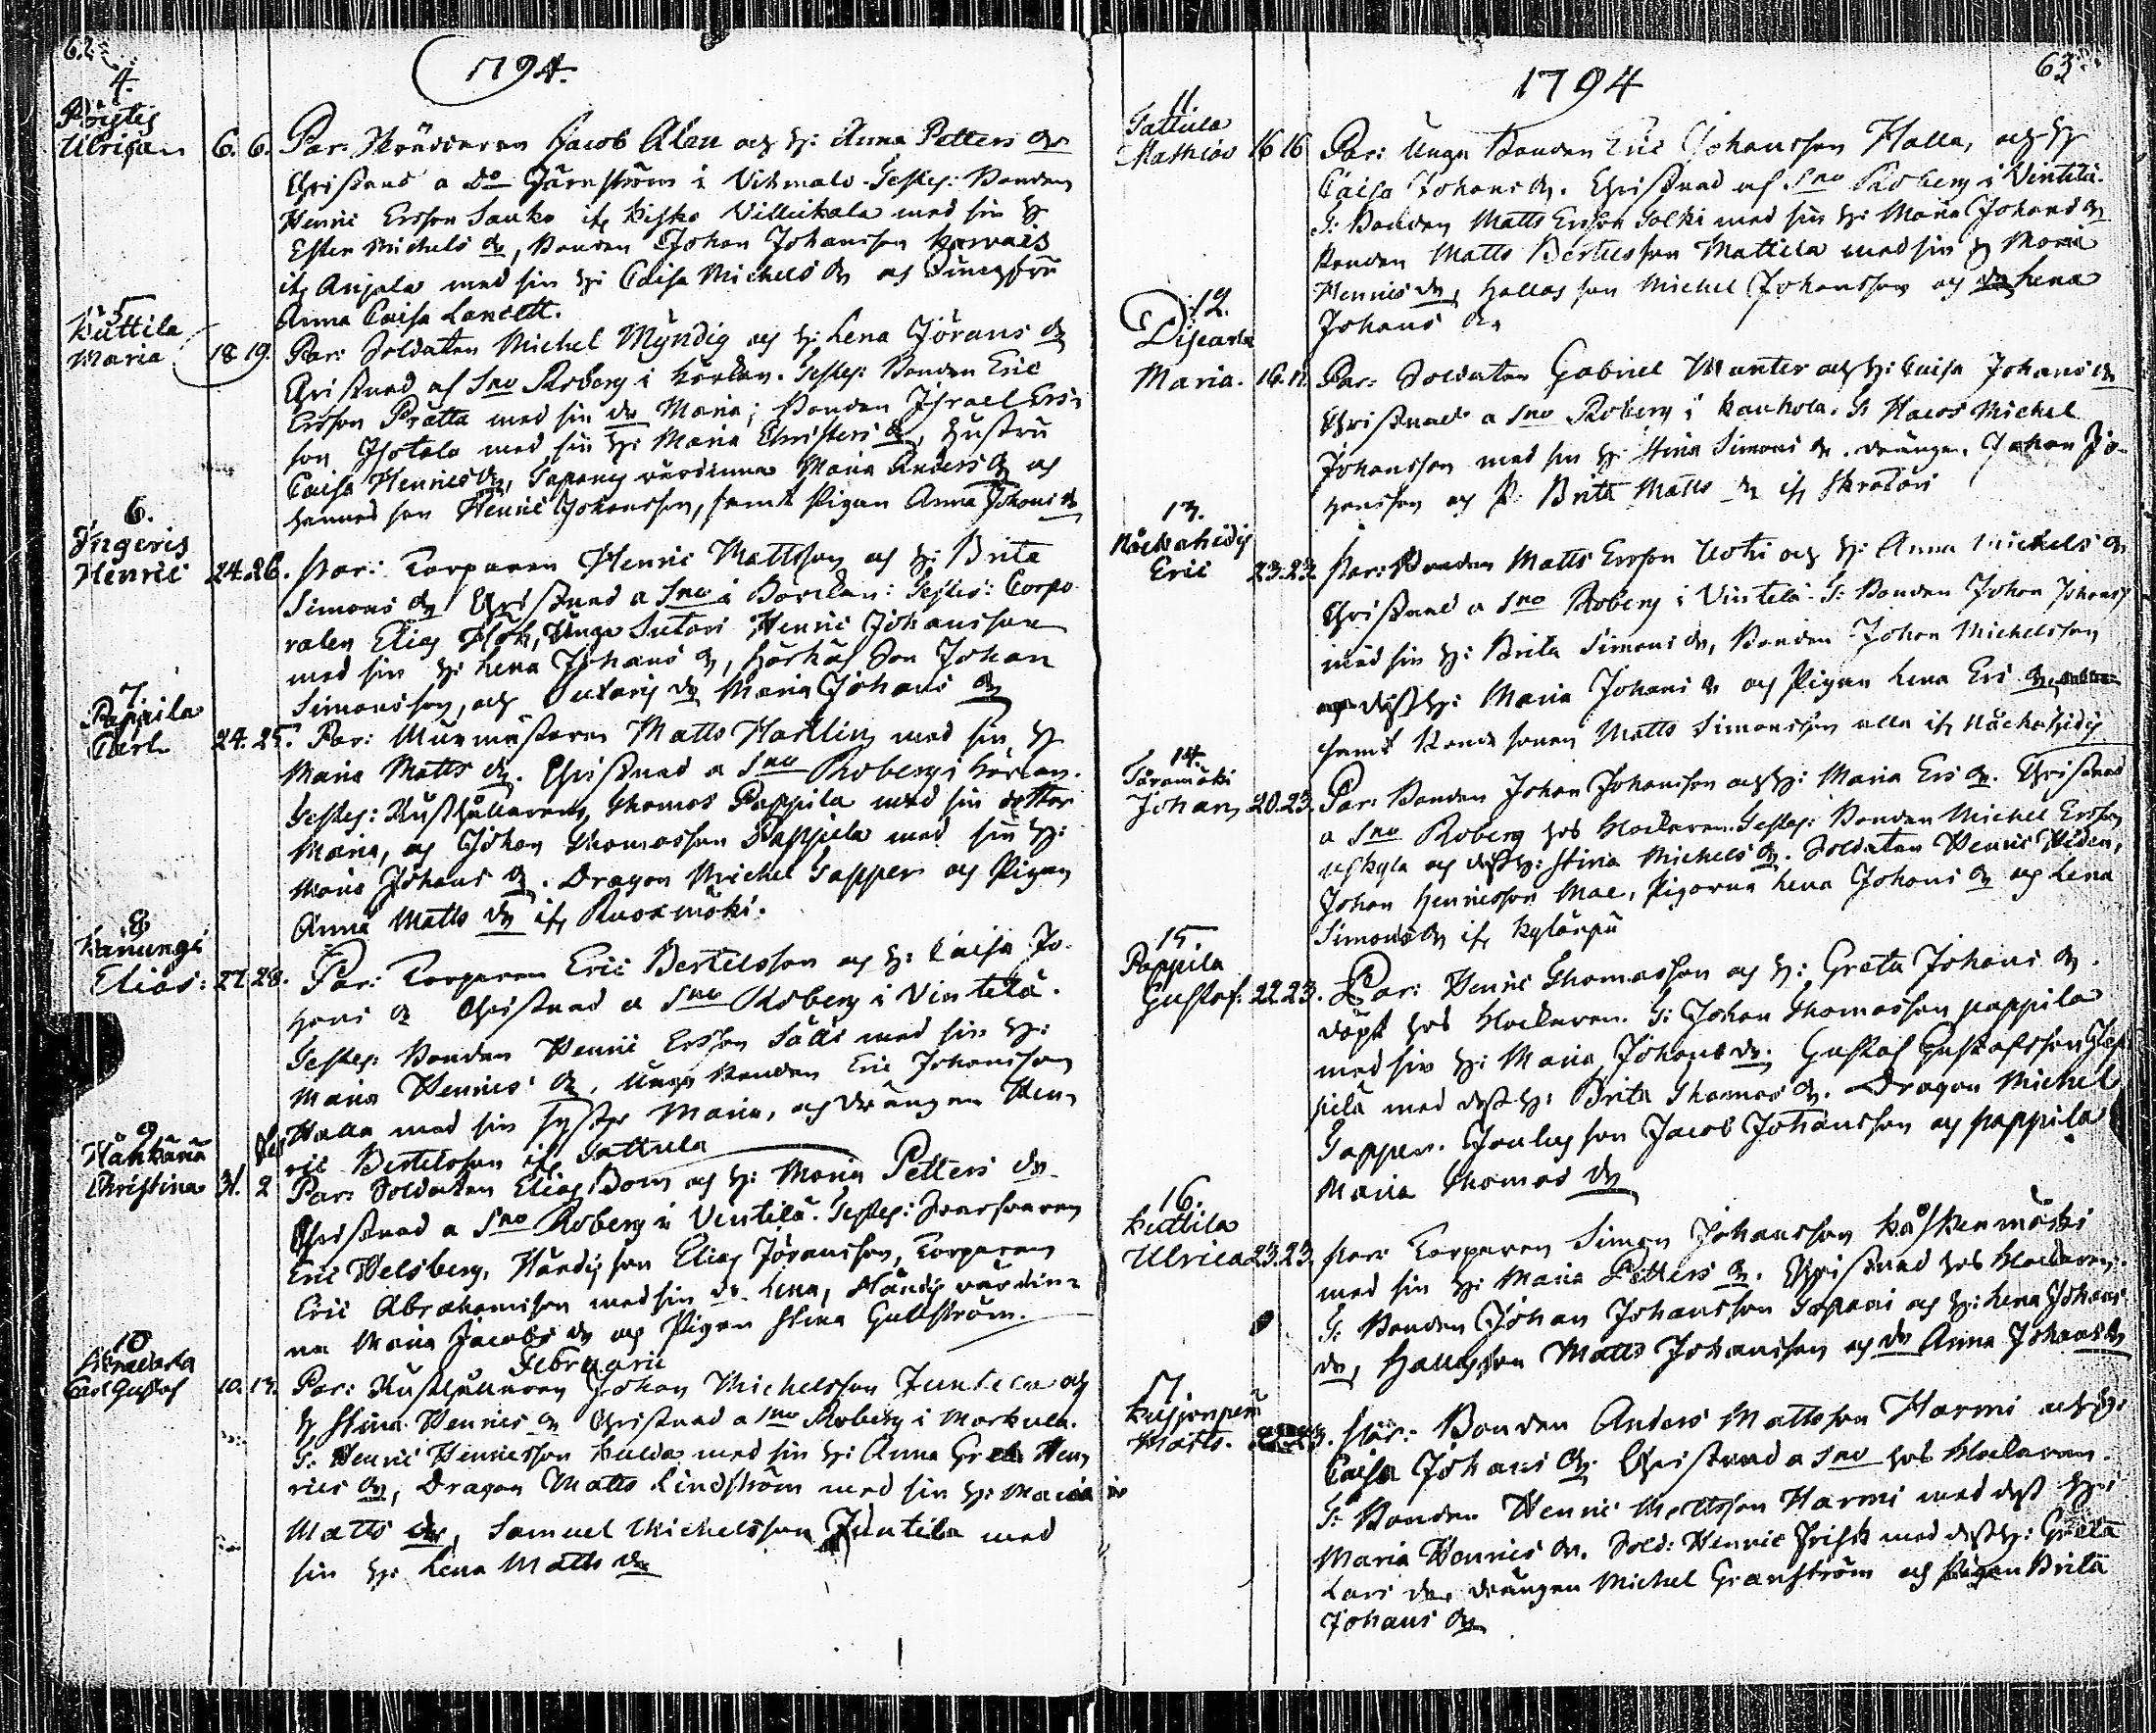 62
1794.
4.
Ulrica
6. 6. Par: Skräddaren Jacob Alen och h: Anna Petters dr
Christnad a do Järnström i Vikmalo. Testes: Bonden
Henric Ersson Sauko ifr Villickala med sin h
Ester Michels dr, Bonden Johan Johansson
ifr Anjala med sin h: Caisa Michels dr och Jungfru
Anna Caisa Lancett.
5
Kuttila
Maria
18 19. Par: Soldaten Michel Myndig och h: Lena Jörans dr
Christnad af Sno Roberg i Körlax. Testes: Bonden Eric
Ersson Pratta med sin dr Maria; Bonden Israel Ers-
son Isotalo med sin h: Maria Christers dr, hustru
Caisa Henrics dr, Sapans värdinna Maria Anders dr och
hennes son Henric Johansson, samt Pigan Anna Johans dr
6.
Ingeris
Henric
24. 26. Par: Torparen Henric Mattsson och h: Brita
Simons dr Christnad a Sno i Testes: Corpo-
ralen Elias Unga Sutari Henric Johansson
med sin h: Lena Johans dr, Son Johan
Simonsson, och Sutaris dr Maria Johans dr
7.
Pappila
Carl
24. 25. Par: Murmästaren Matts Harlling med sin h
Maria Matts dr. Christnad a Sno Roberg i
Testes: Rusthållaren Thomas Pappila med sin dotter
Maria, och Johan Thomasson Pappila med sin h:
Maria Johans dr. Dragon Michel Tapper och Pigan
Anna Matts dr ifr Ruoxmäki.
8
Elias:
27 28. Par: Torparen Eric Bertelsson och h: Caisa Jo-
hans dr Christnad a Sno Roberg i Vintelä.
Testes: Bonden Henric Ersson med sin h:
Maria Henrics dr, Unga Bonden Eric Johansson
Halla med sin syster Maria, och drängen Hen-
ric Bertelsson ifr Sattula
9
Christina
31. 2 Par: Soldaten Elias Dorn och h: Maria Petters dr
Christnad a Sno Roberg i Ventilä. Testes:
Eric Welsberg, son Elias Joransson, Torparen
Eric Abrahamsson med sin dr Lena, värdin-
na Maria Jacobs dr och Pigan Stina Gullström.
Februarii
10
Carl Gustaf
10. 13. Par: Rusthållaren Johan Michelsson Juntila och
h Stina Henrics dr Christnad a Sno Roberg i Markula.
T: Henric Henricsson med sin h: Anna Greta Hen-
rics dr, Dragon Matts Lindström med sin h: Maria
Matts dr, Samuel Michelsson Juntila med
sin h: Lena Matts dr
63
1794
11.
Sattula
Mathias
16 16 Par: Unga Bonden Eric Johansson Halla, och h
Caisa Johans dr. Christnad af Sno Roberg i Vintelä.
T: Bonden Matts Ersson Solki med sin h: Maria Johans dr
Bonden Matts Bertelsson Mattila med sin h Maria
Henrics dr, Hallas son Michel Johansson och dr Lena
Johans dr
12.
Maria.
16. 17. Par: Soldaten Gabriel Munter och h: Caisa Johans dr
Christnad a Sno Roberg i Kankola. T: Michel
Johansson med sin h: Stina Simons dr. drängen Johan Jo-
hansson och P: Brita Matts dr ifr
13.
Eric
23. 23. Par: Bonden Matts Ersson Uoti och h: Anna Michels dr
Christnad a Sno Roberg i Vintelä T: Bonden Johan Johanss
med sin h: Brita Simons dr, Bonden Johan Michelsson
dess h: Maria Johans dr och Pigan Lena Ers dr
samt Bonde sonen Matts Simonsson alla ifr Näckahidis
14.
Saramäki
Johan
20. 23. Par: Bonden Johan Johansson och h: Maria Ers dr. Christnad
a Sno Roberg hos Klockaren. Testes: Bonden Michel Ersson
Uskyla och dess h: Stina Michels dr. Soldaten Henric Widen,
Johan Henricsson Mae, Pigorna Lena Johans dr och Lena
Simons dr ifr Kylänpä
15.
Pappila
Gustaf:
22. 23. Par: Henric Thomasson och h: Greta Johans dr.
döpt hos Klockaren. T: Johan Thomasson pappila
med sin h: Maria Johans dr; Gustaf Gustafsson
med dess h: Brita Thomas dr. Dragon Michel
Tapper. son Jacob Johansson och pappila
Maria Thomas dr
16.
Kuttila
Ulrica
23. 23. Par: Torparen Simon Johansson
med sin h: Maria Petters dr. Christnad hos Klockaren.
T: Bonden Johan Johansson Sapani och h: Lena Johans
dr, Hallas son Matts Johansson och dr Anna Johans dr
17.
Matts.
Par: Bonden Anders Mattsson Harmi och h:
Caisa Johans dr: Christnad a Sno hos Klockaren.
T: Bonden Henric Mattsson Harmi med dess h:
Maria Henrics dr. Sold: Henric Frisk med dess h: Greta
Lars dr drängen Michel Granström och Pigan Brita
Johans dr